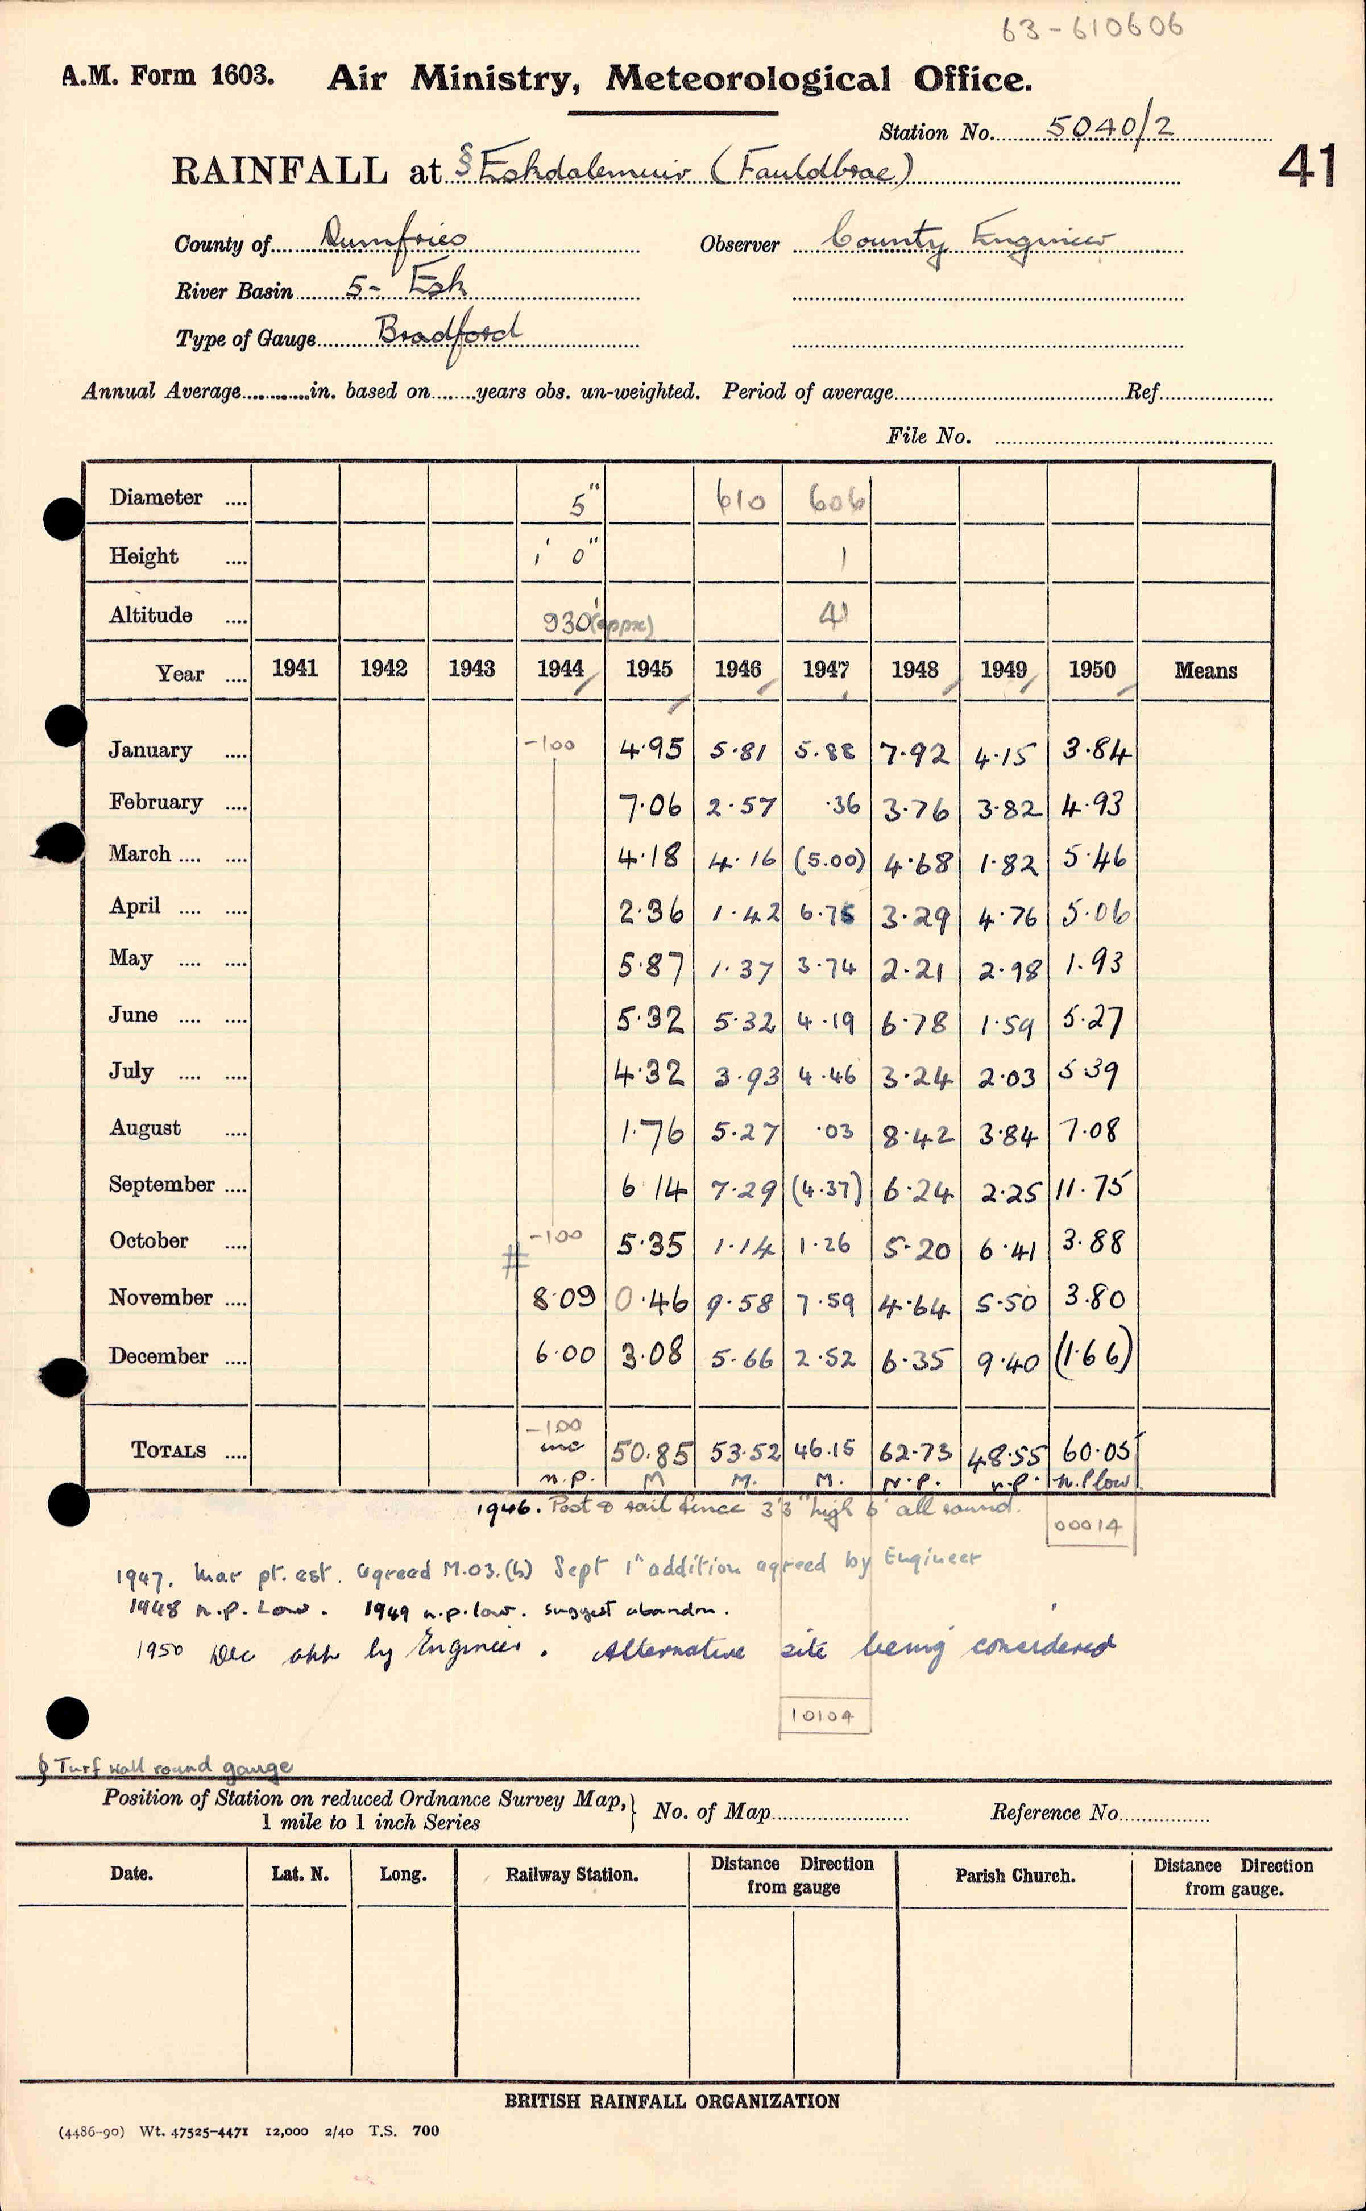 63-610606
A.M. Form 1603. Air Ministry, Meteorological Office.
Station No. 5040/2
41
RAINFALL at § Eskdalemuir (Fauldbrae)
County of Dumfries Observer County Engineer
River Basin 5- Esk
Type of Gauge Bradford
Annual Average in. based on years obs. un-weighted. Period of average Ref.
File No.
Diameter 5" 610 606
Height 1' 0" 1
Altitude 930' (appx) 41
Year 1941 1942 1943 1944 1945 1946 1947 1948 1949 1950 Means
January -100 4.95 5.81 5.88 7.92 4.15 3.84
February 7.06 2.57 .36 3.76 3.82 4.93
March 4.18 4.16 (5.00) 4.68 1.82 5.46
April 2.36 1.42 6.75 3.29 4.76 5.06
May 5.87 1.37 3.74 2.21 2.98 1.93
June 5.32 5.32 4.19 6.78 1.59 5.27
July 4.32 3.93 4.46 3.24 2.03 5.39
August 1.76 5.27 .03 8.42 3.84 7.08
September 6.14 7.29 (4.37) 6.24 2.25 11.75
October -100 5.35 1.14 1.26 5.20 6.41 3.88
#
November 8.09 0.46 9.58 7.59 4.64 5.50 3.80
December 6.00 3.08 5.66 2.52 6.35 9.40 (1.66)
-100
TOTALS inc 50.85 53.52 46.15 62.73 48.55 60.05
n.p. M M. M. N.P. n.p. n.p low
1946. Post & rail fence 3'3" high 6' all round.
00014
1947. Mar pt. est. agreed M.O3.(b) Sept 1" addition agreed by Engineer
1948 n.p. Low. 1949 n.p. low. suggest abandon.
1950 Dec by Engineer. Alternative site being considered
10104
§ Turf wall round gauge
Position of Station on reduced Ordnance Survey Map, } No. of Map Reference No.
1 mile to 1 inch Series
Date. Lat. N. Long. Railway Station. Distance Direction from gauge Parish Church. Distance Direction from gauge.
BRITISH RAINFALL ORGANIZATION
(4486-90) Wt. 47525-4471 12,000 2/40 T.S. 700